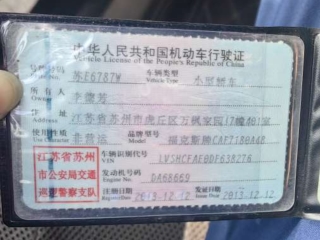 中华人民共和国机动车行驶证
Vehicle License of the People's Republic of China
号牌号码 苏E6787W 车辆类型 小型轿车
所有人
Owner
住址 江苏省苏州市虎丘区万枫家园17幢401室
使用性质 非营运 品牌型号 福克斯牌CAF7180A48
Use Character
江苏省苏州
市公安局交通
巡逻警察支队
车辆识别代号
VIN
发动机号码 DA68669
Engine No.
注册日期 2013-12-12 发证日期 2013-12-12